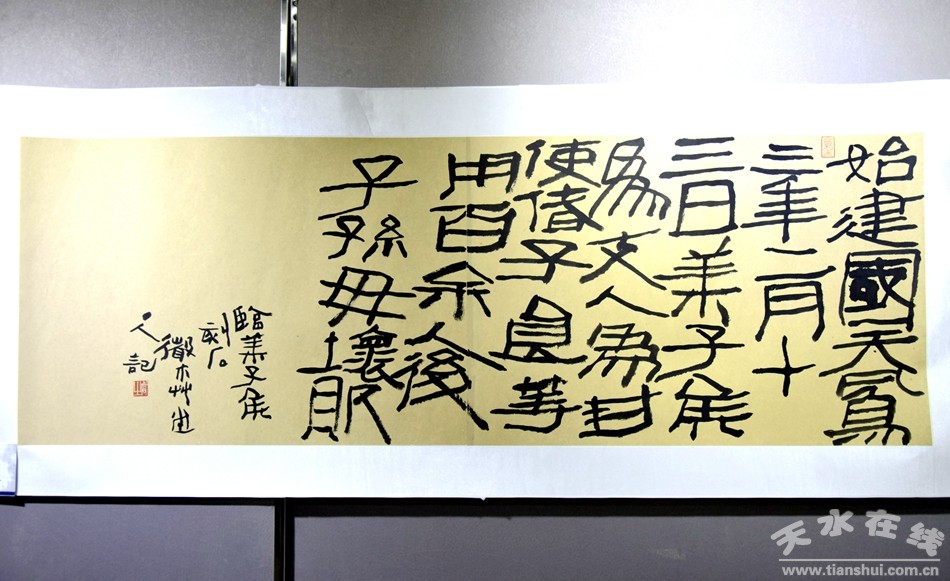 始建國天鳳
三年二月十
三日萊子侯
為支人為封
使偖子食等
用百余人後
子孫毋壞敗
臨萊子侯
刻石
人記
天水在线
www.tianshui.com.cn